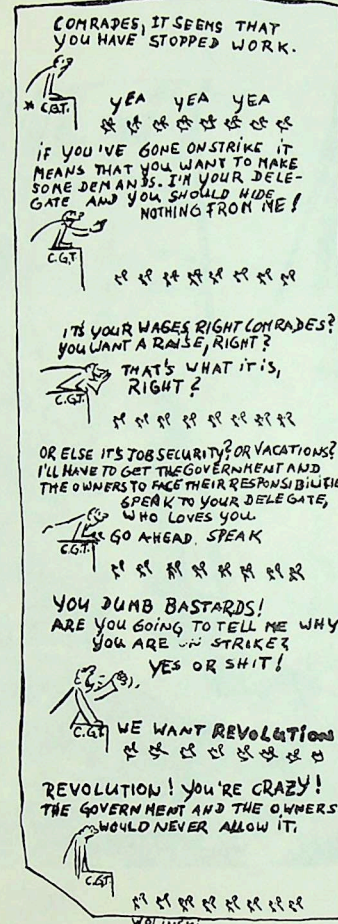 COMRADES, IT SEEMS THAT
YOU HAVE STOPPED WORK.
* C.G.T.
YEA YEA YEA
IF YOU'VE GONE ON STRIKE IT
MEANS THAT YOU WANT TO MAKE
SOME DEMANDS. I'M YOUR DELE-
GATE AND YOU SHOULD HIDE
NOTHING FROM ME!
C.G.T
IT'S YOUR WAGES RIGHT COMRADES?
YOU WANT A RAISE, RIGHT?
THAT'S WHAT IT IS,
RIGHT?
C.G.T.
OR ELSE IT'S JOB SECURITY? OR VACATIONS?
I'LL HAVE TO GET THE GOVERNMENT AND
THE OWNERS TO FACE THEIR RESPONSIBILITIE
SPEAK TO YOUR DELEGATE,
WHO LOVES YOU.
GO AHEAD. SPEAK
C.G.T.
YOU DUMB BASTARDS!
ARE YOU GOING TO TELL ME WHY
YOU ARE ON STRIKE?
YES OR SHIT!
C.G.T
WE WANT REVOLUTION
REVOLUTION! YOU'RE CRAZY!
THE GOVERNMENT AND THE OWNERS
WOULD NEVER ALLOW IT.
C.G.T
WOLINSKI